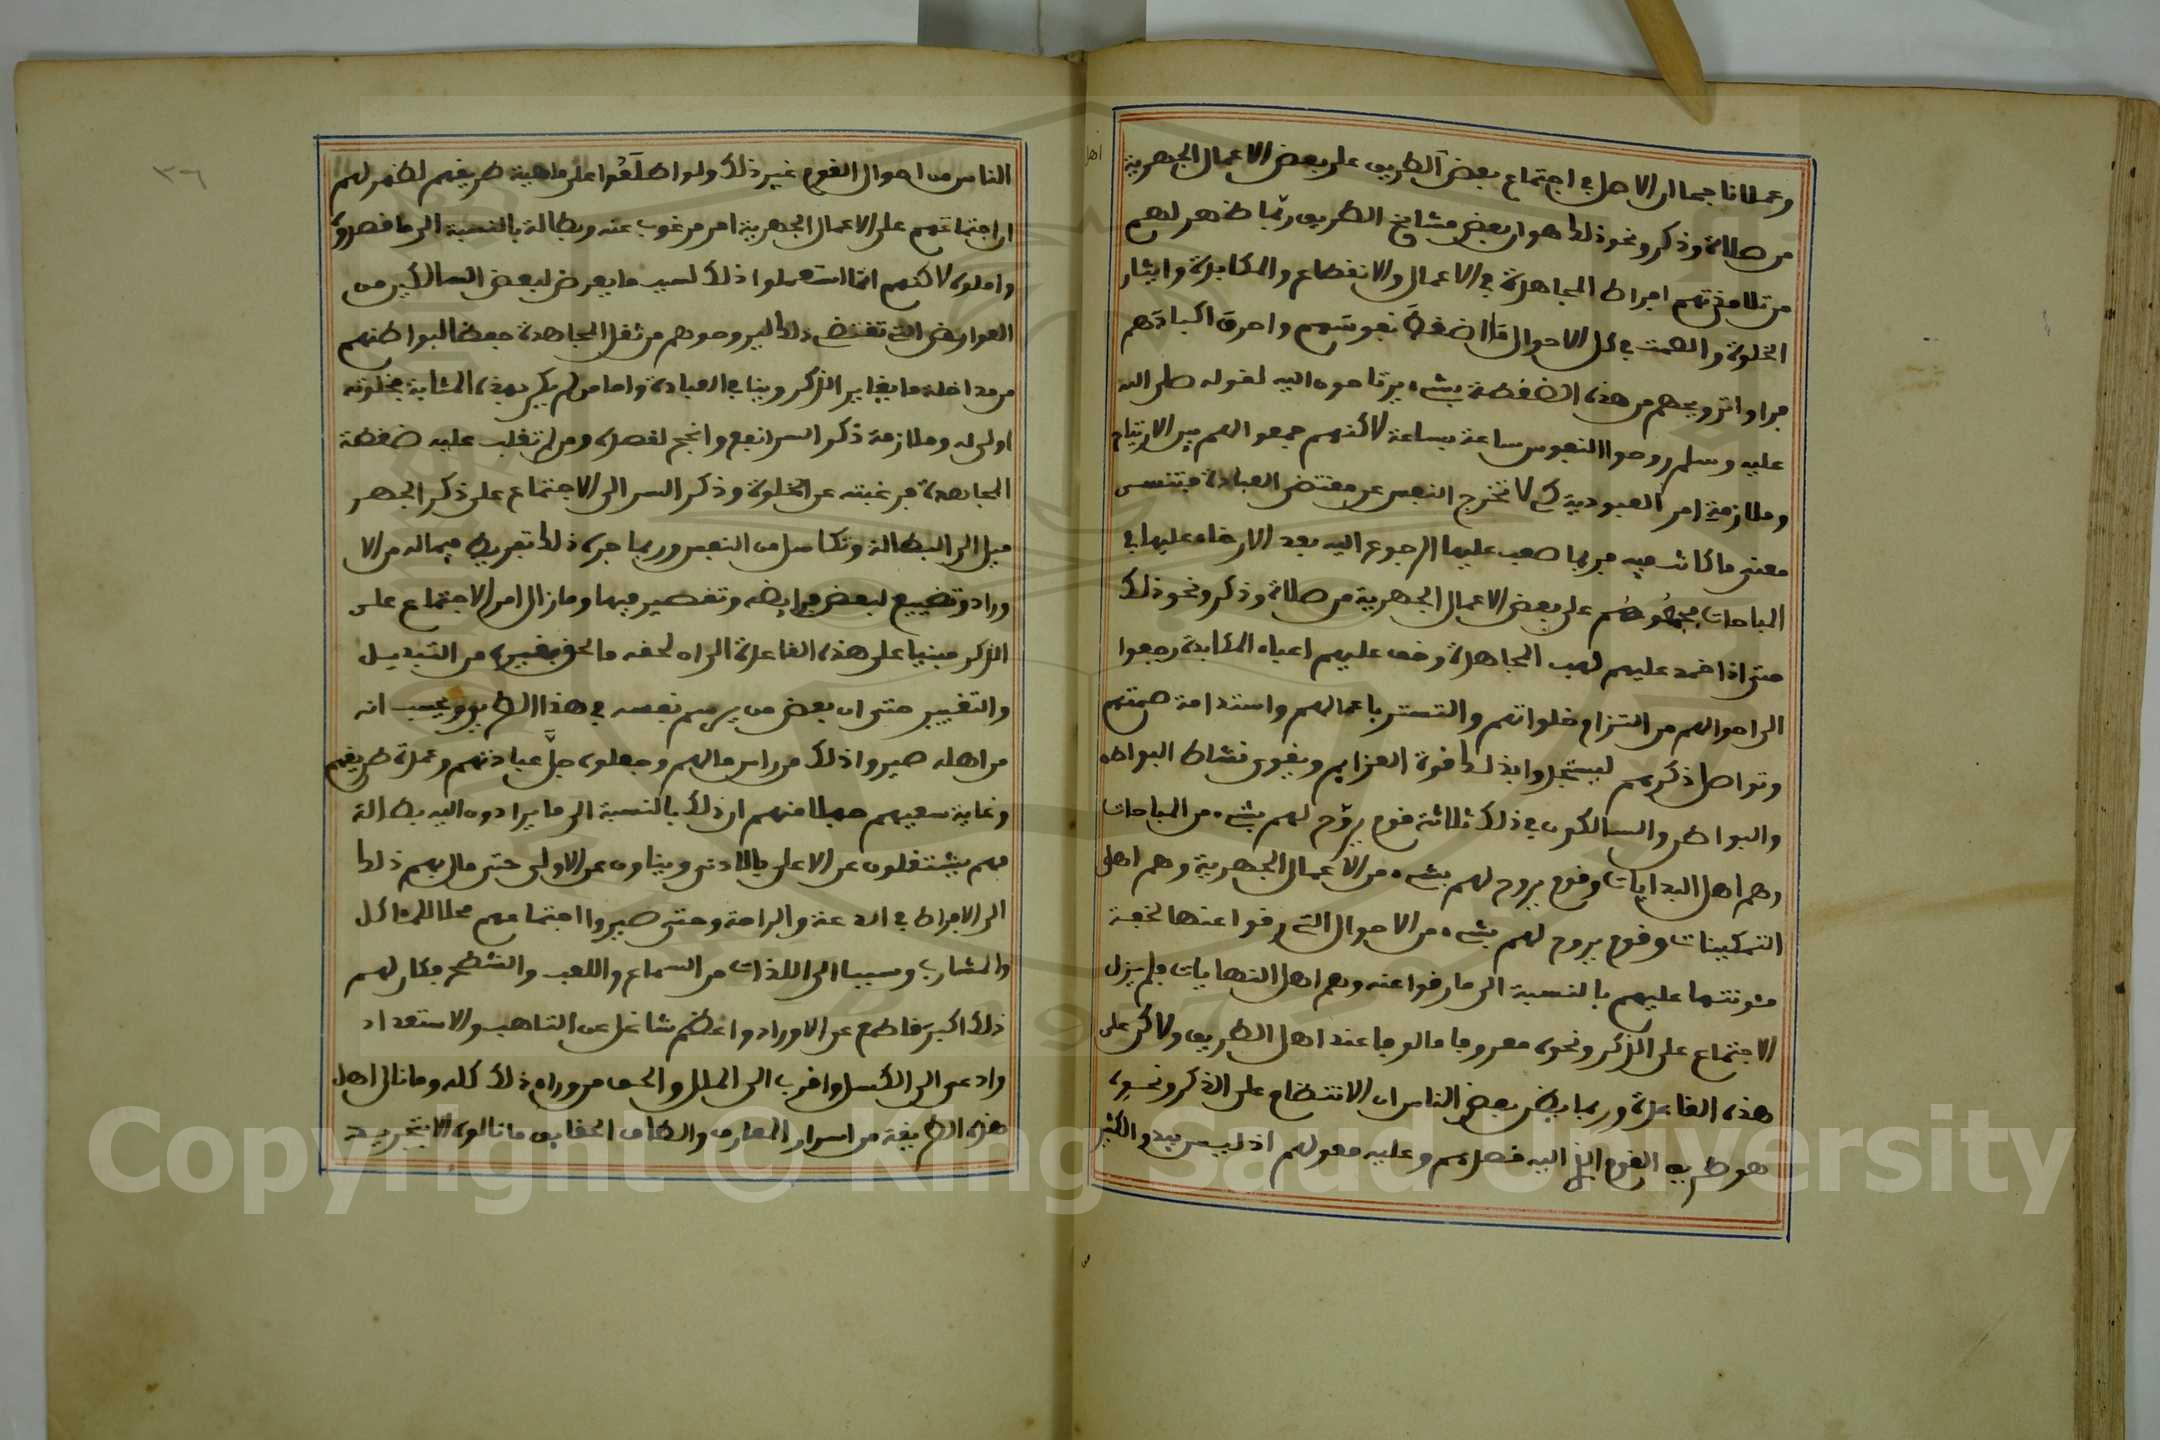 اهل
وعملا ناجما ان الاصل في اجتماع بعض الطريق على بعض الاعمال الجهرية
من صلاة وذكر ونحو ذلك هو ان بعض مشايخ الطريق ربما ظهر لهم
من تلامذتهم افراط المجاهدة في الاعمال والانقطاع والمكابدة وايثار
الخلوة والصمت في كل الاحوال فلما ضغط نفوسهم واحرق اكبادهم
فراوا ترويحهم من هذه الضغطة بشيء يرتاحون اليه لقوله صلى الله
عليه وسلم روحوا النفوس ساعة بساعة لاكنهم جمعوا لهم بين الارتياح
وملازمة امر العبودية كي لا تخرج النفس عن مقتضى العبادة فتنسى
معنى ما كانت فيه فربما صعب عليها الرجوع اليه بعد الارخاء عليها في
المباحات فجمعوهم على بعض الاعمال الجهرية من صلاة وذكر ونحو ذلك
حتى اذا خمد عليهم لهب المجاهدة وخف عليهم اعباء المكابدة رجعوا
الى احوالهم من التزام خلواتهم والتستر باعمالهم واستدامة صمتهم
وتواصل ذكرهم ليستجدوا بذلك قوة العزايم ويقوى نشاط البواطن
والبواطن والسالكون في ذلك ثلاثة قوم يروح لهم بشيء من المباحات
وهم اهل البدايات وقوم يروح لهم بشيء من الاعمال الجهرية وهم اهل
التمكينات وقوم يروح لهم بشيء من الاحوال التي رقوا عنها لخفة
مئونتها عليهم بالنسبة الى ما رقوا عنه وهم اهل النهايات فلم يزل
الاجتماع على الذكر ونحوه معروفا مالوفا عند اهل الطريق ولاكن على
هذه القاعدة وربما يظن بعض الناس ان الانتظام على الذكر ونحوه
هو طريق القوم الذي اليه قصدهم وعليه معولهم اذ ليس يبدو لاكثر
٣٦
الناس من احوال القوم غير ذلك ولو اطلعوا على ماهية طريقهم لظهر لهم
ان اجتماعهم على الاعمال الجهرية امر مرغوب عنه وبطالة بالنسبة الى ما قصدوه
واملوه لاكنهم انما استعملوا ذلك لسبب ما يعرض لبعض السالكين من
العوارض التي تقتضي ذلك ليروحوهم من ثقل المجاهدة حفظا لبواطنهم
من مداخلة ما يغاير الذكر وينافي العبادة واما من لم يكن بهذه المثابة فخلوته
اولى له وملازمة ذكر السر انفع وانجح لقصده ومن لم تغلب عليه ضغطة
المجاهدة فرغبته عن الخلوة وذكر السر الى الاجتماع على ذكر الجهر
ميل الى البطالة وتكاسل من النفس وربما جر ذلك تفريطه فيما له من الا
وراد وتضييع لبعض فرايضه وتقصير فيها وما زال امر الاجتماع على
الذكر مبنيا على هذه القاعدة الى ان لحقه ما لحق غيره من التبديل
والتغيير حتى ان بعض من يرسم نفسه في هذا الطريق ويحسب انه
من اهله صيروا ذلك من راس مالهم وجعلوه جل عبادتهم وعمدة طريقهم
وغاية سعيهم جهلا منهم ان ذلك بالنسبة الى ما يرادون اليه بطالة
فهم يشتغلون عن الاعلى بالادنى وينئون عن الاولى حتى مال بهم ذلك
الى الافراط في الدعة والراحة وحتى صيروا اجتماعهم محلا للمئاكل
والمشارب وسببا الى اللذات من السماع واللعب والشطح فكان لهم
ذلك اكبر قاطع عن الاوراد واعظم شاغل عن التاهب والاستعداد
وادعى الى الكسل واقرب الى الملل والحق من وراء ذلك كله وما نال اهل
هذه الطريقة من اسرار المعارف والطاف الحقايق ما نالوه الا بتجريد
Copyright © King Saud University